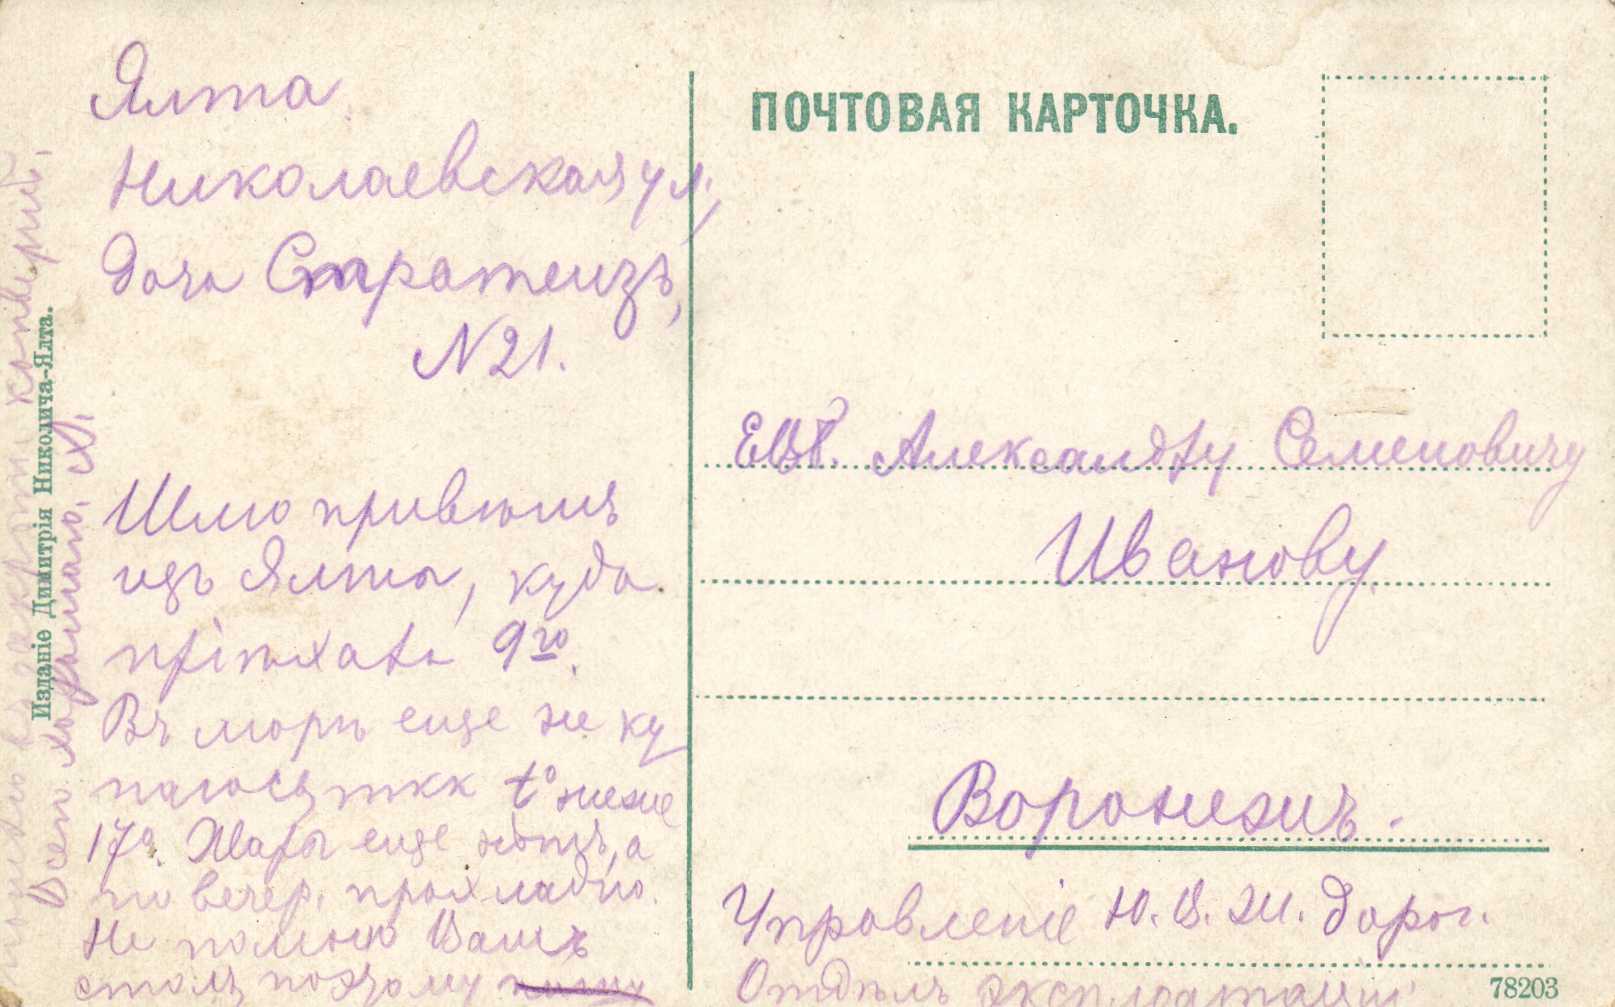 Ялта
Николаевская ул.,
дача Стратеизъ,
N 21.
Шлю привѣтъ
изъ Ялты, куда
пріѣхала 9го.
Въ морѣ еще не ку
паюсь, ткк t° ниже
17°. Жары еще нѣтъ, а
по вечер. прохладно.
Не помню Вашъ
столъ поэтому
пошлю въ закрыти
Всего хорошаго.
Изданіе Димитрія Николича-Ялта.
ПОЧТОВАЯ КАРТОЧКА.
ЕВб. Александру Семеновичу
Иванову.
Воронежъ.
Управленіе Ю. В. ж. дорог.
Отдѣлъ эксплоатаціи
78203